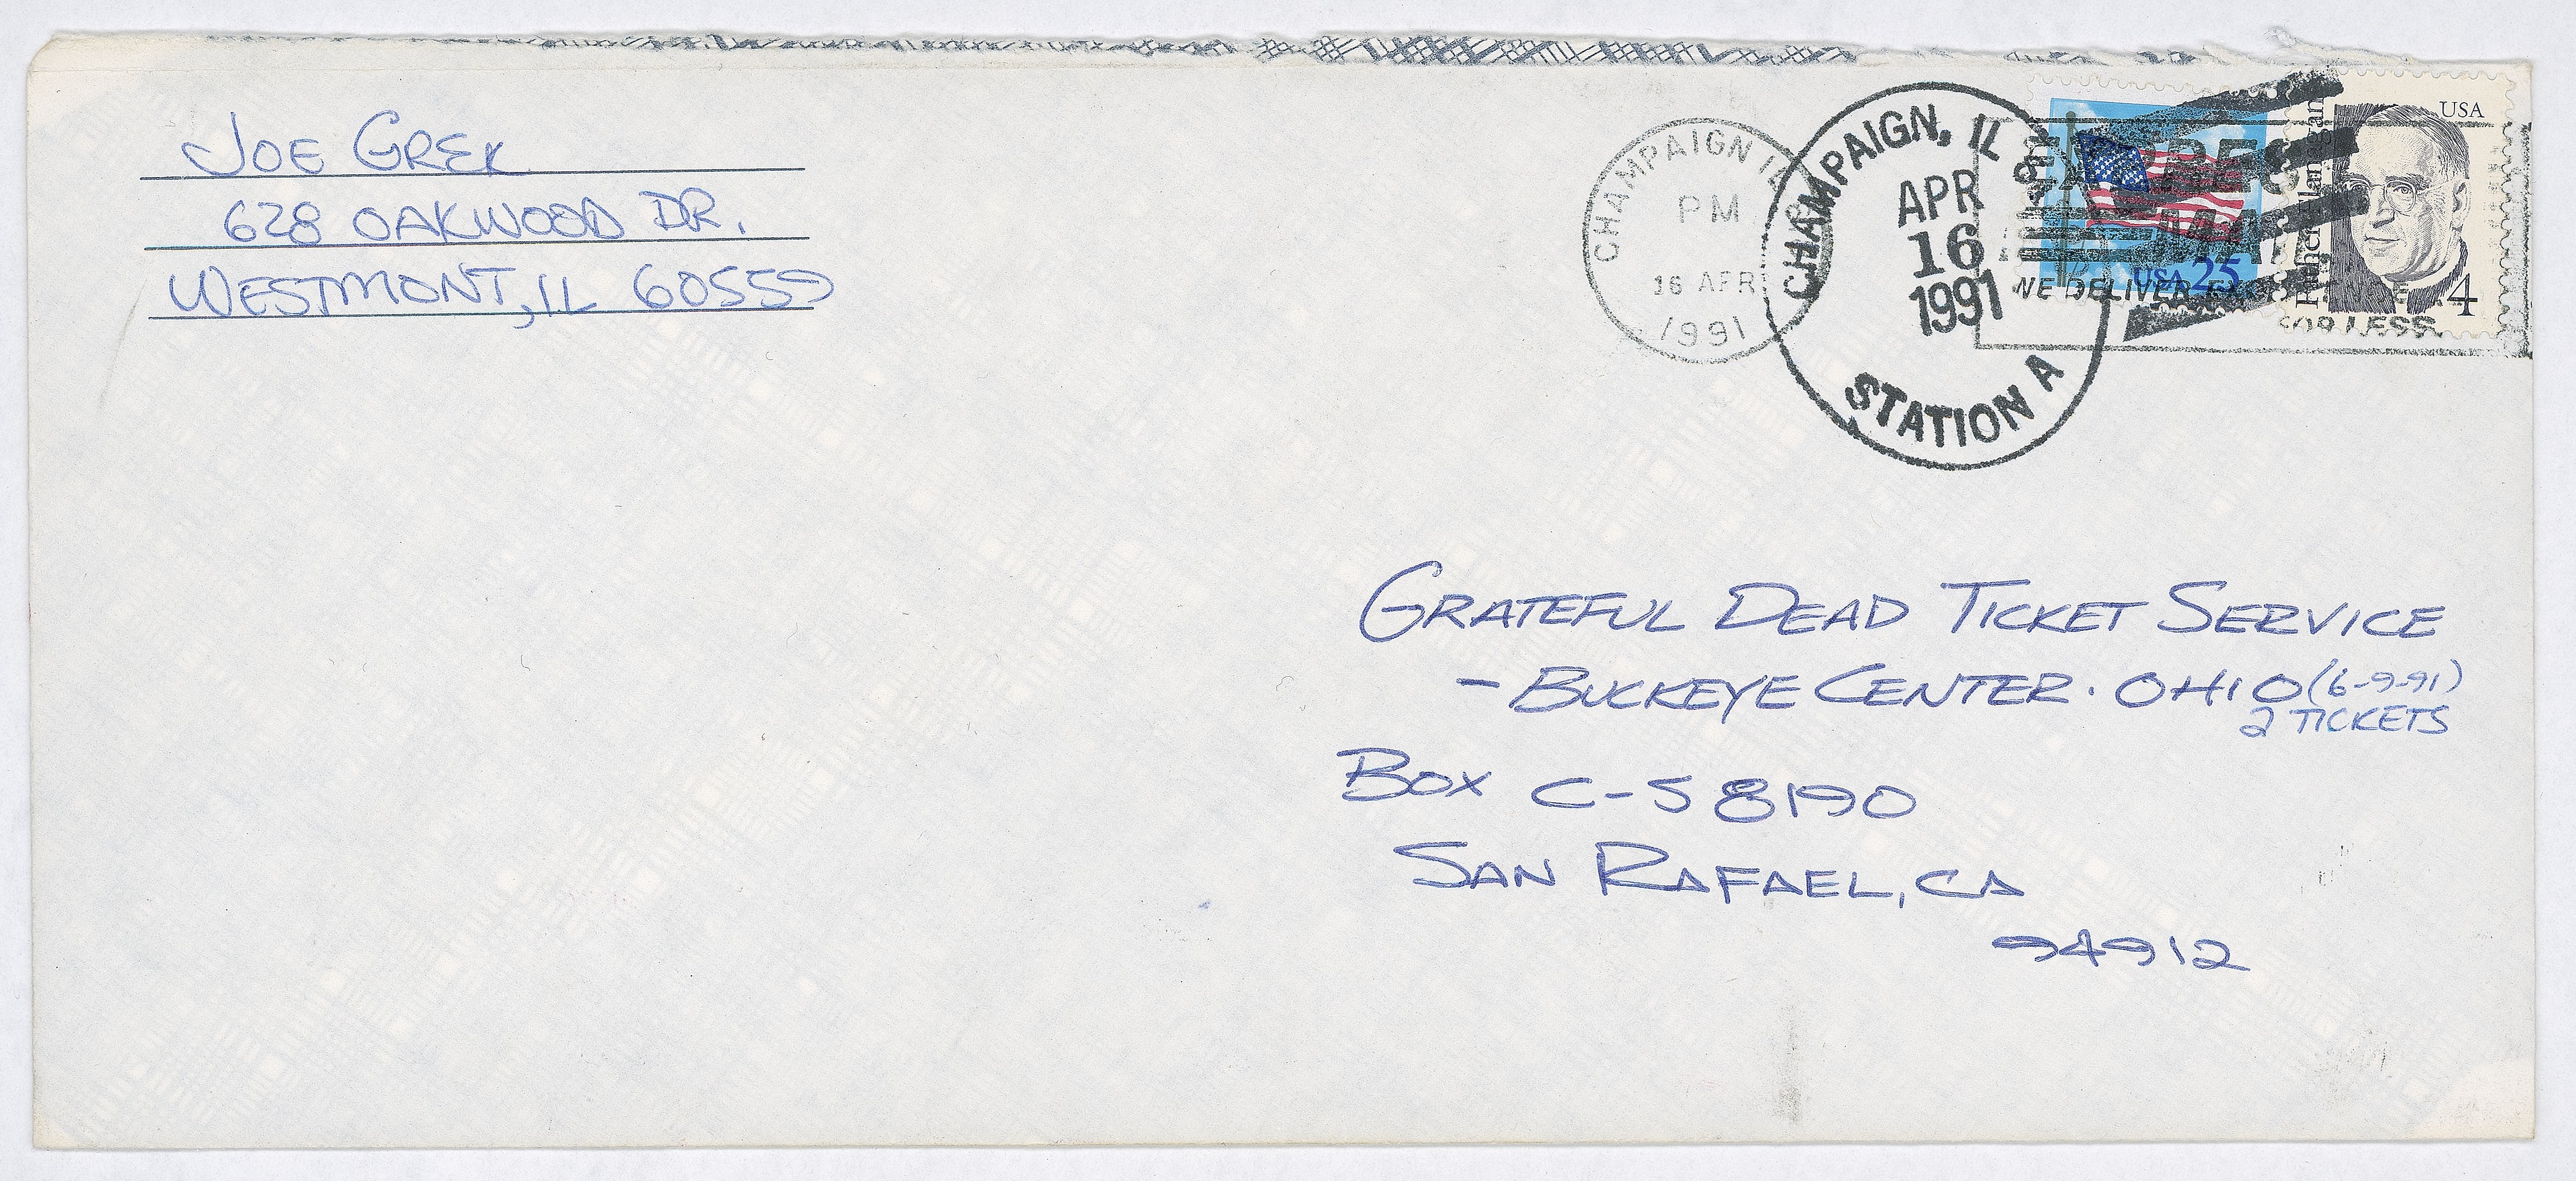 JOE GREK
628 OAKWOOD DR.
WESTMONT, IL 60559
CHAMPAIGN IL
PM
16 APR
1991
CHAMPAIGN, IL
APR
16
1991
STATION A
EXPRESS
MAIL
WE DELIVER
FOR LESS
USA 25
USA
4
GRATEFUL DEAD TICKET SERVICE
- BUCKEYE CENTER · OHIO (6-9-91)
2 TICKETS
BOX C-S 8190
SAN RAFAEL, CA
94912